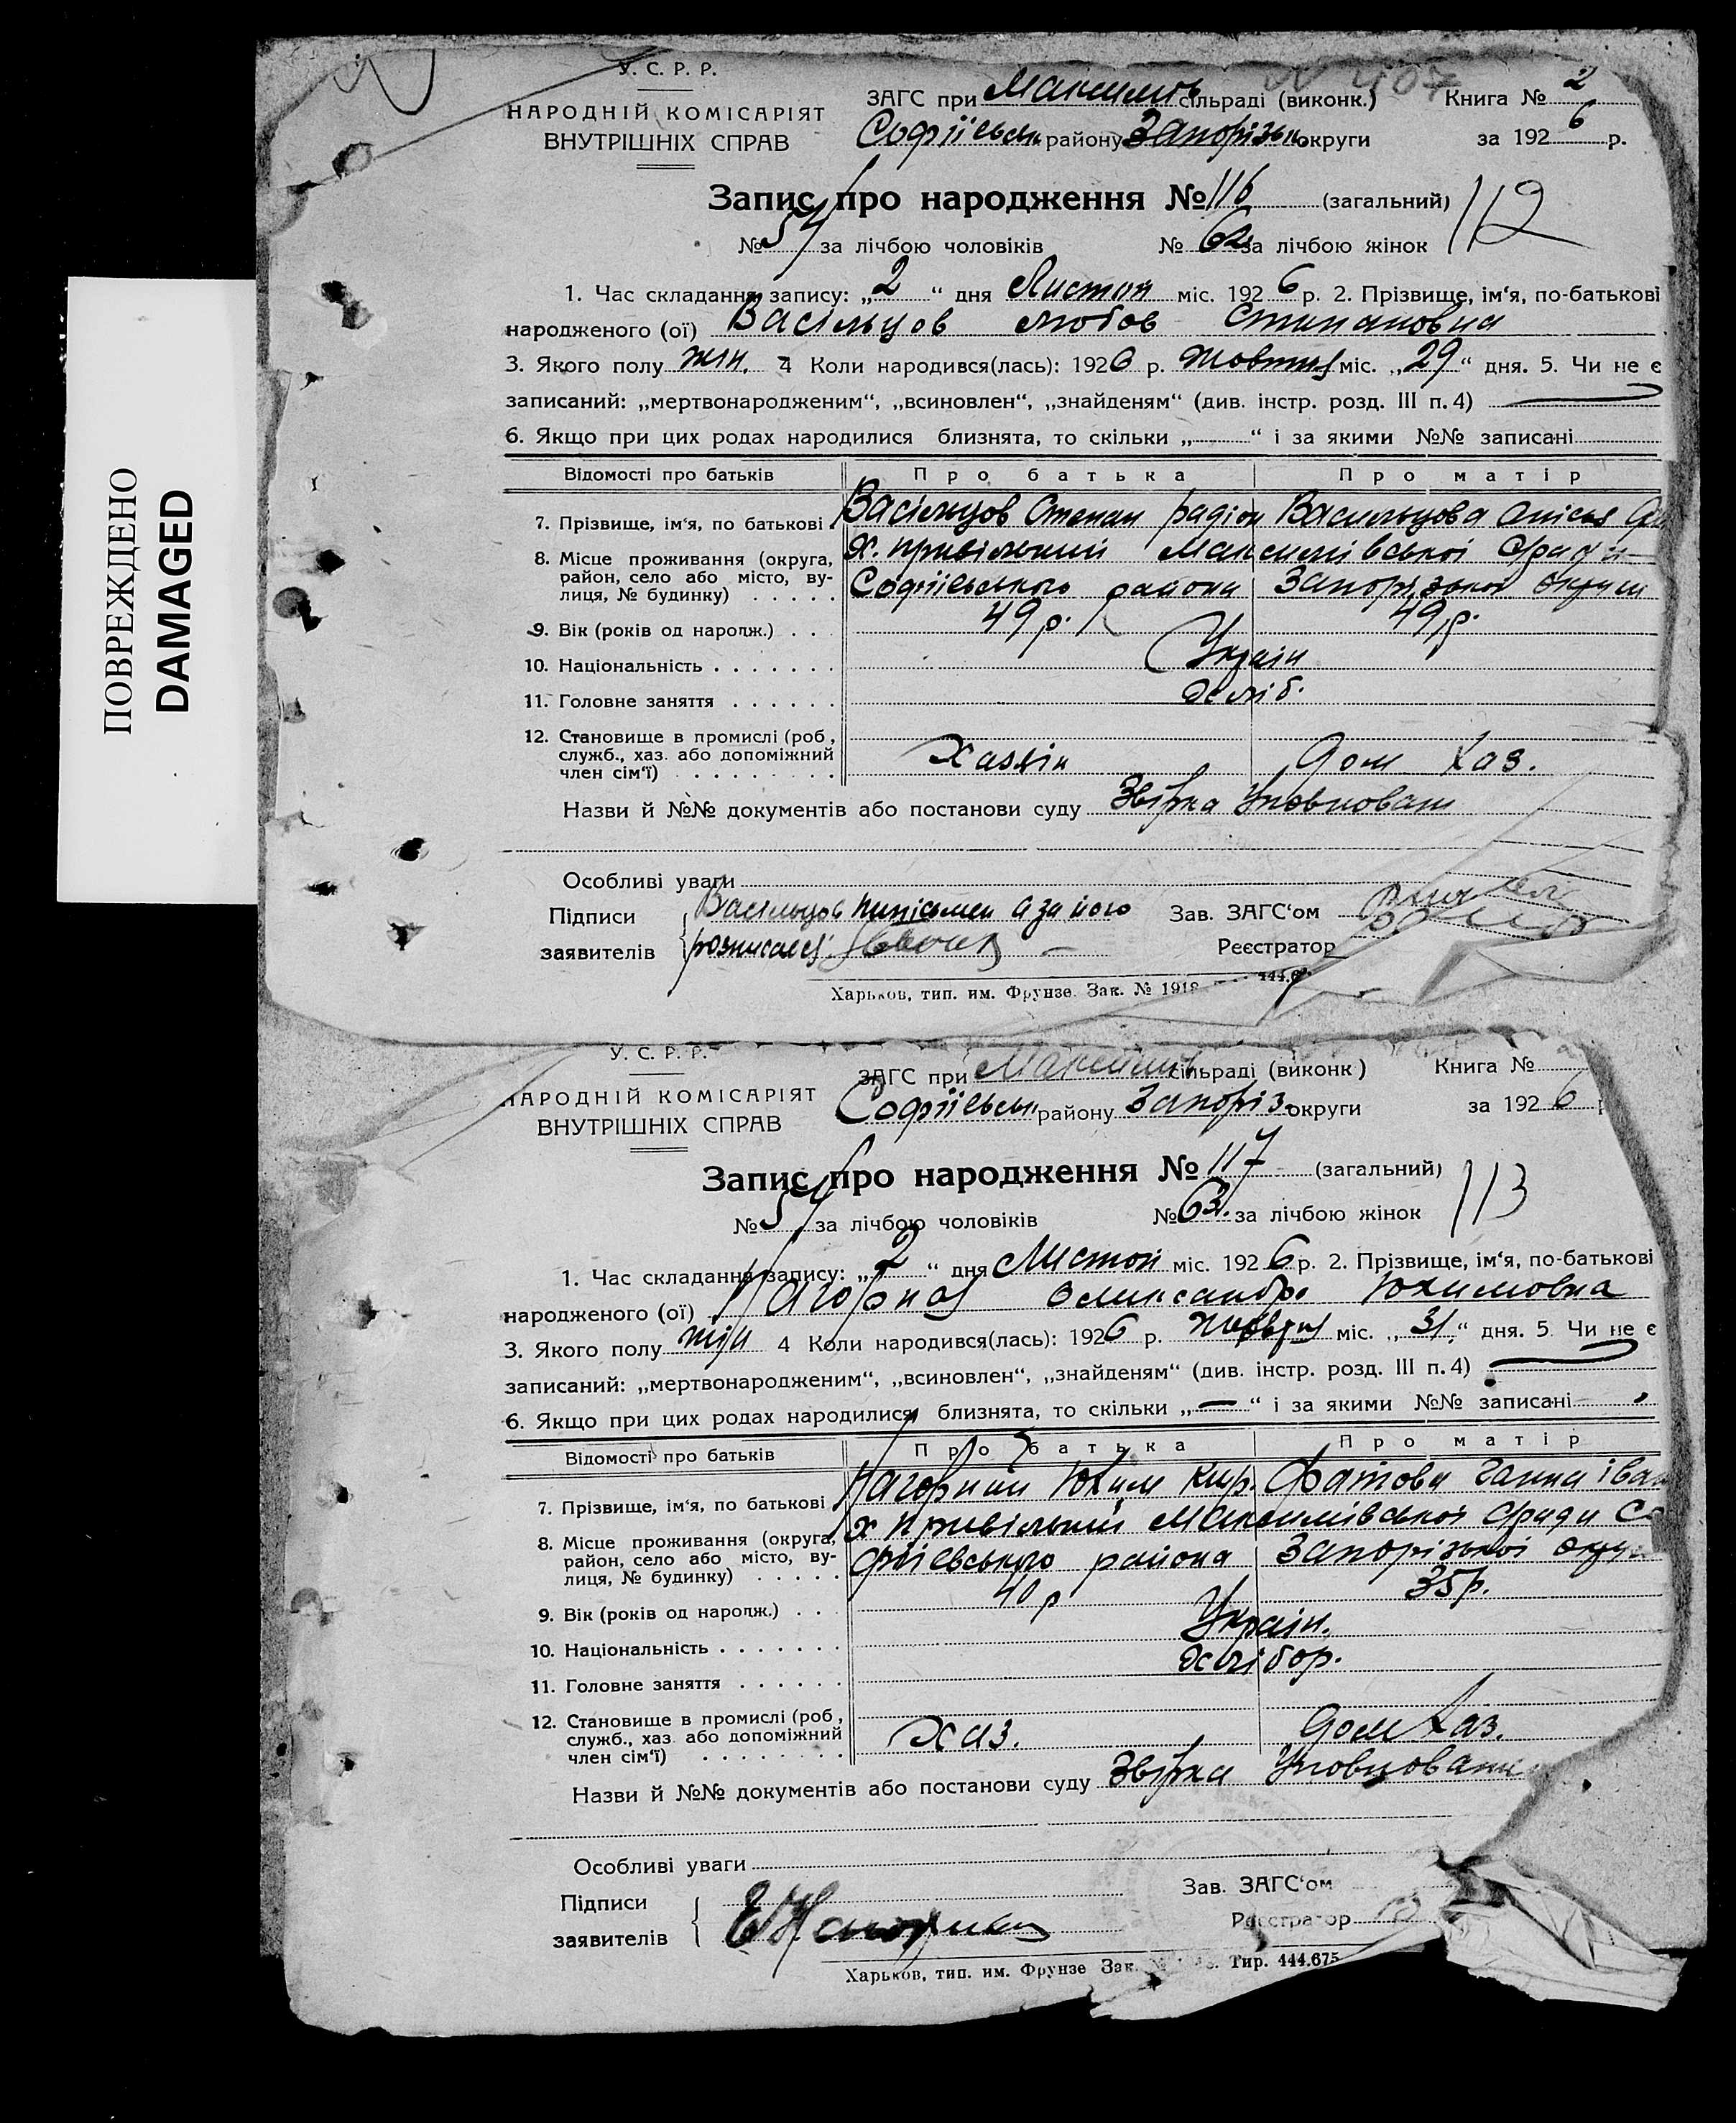 ПОВРЕЖДЕНО
DAMAGED
У. С. Р. Р.
НАРОДНІЙ КОМІСАРІЯТ
ВНУТРІШНІХ СПРАВ
ЗАГС при Максимів сільраді (виконк.)
Софіївськ району Запорізьк округи
Книга № 2
за 1926 р.
Запис про народження № 116 (загальний) 112
№ 54 за лічбою чоловіків № 62 за лічбою жінок
1. Час складання запису: „2“ дня Листоп міс. 1926 р. 2. Прізвище, ім‘я, по-батькові
народженого (ої) Васільцов Любов Степановна
3. Якого полу жін. 4 Коли народився(лась): 1926 р. Жовтня міс. „29“ дня. 5. Чи не є
записаний: „мертвонародженим“, „всиновлен“, „знайденям“ (див. інстр. розд. III п. 4)
6. Якщо при цих родах народилися близнята, то скільки „ “ і за якими №№ записані
Відомості про батьків Про батька Про матір
7. Прізвище, ім‘я, по батькові Васільцов Степан Радіон Васильцова
8. Місце проживання (округа, район, село або місто, вулиця, № будинку) х. Привільний Максимівської с/ради
Софіївського района Запорізької округи
9. Вік (років од народж.) 49 р. 49 р.
10. Національність Україн
11. Головне заняття хліб.
12. Становище в промислі (роб., служб., хаз. або допоміжний член сім‘ї) Хазяін Дом Хаз.
Назви й №№ документів або постанови суду Звірка Уповноваж
Особливі уваги
Підписи
заявителів
Васільцов непісьмен а за його
розписався
Зав. ЗАГС‘ом
Реєстратор
Харьков, тип. им. Фрунзе. Зак. № 1918
У. С. Р. Р.
НАРОДНІЙ КОМІСАРІЯТ
ВНУТРІШНІХ СПРАВ
ЗАГС при Максимів сільраді (виконк)
Софіївськ району Запоріз. округи
Книга №
за 1926
Запис про народження № 117 (загальний) 113
№ 54 за лічбою чоловіків № 63. за лічбою жінок
1. Час складання запису: „2“ дня Листоп міс. 1926 р. 2. Прізвище, ім‘я, по-батькові
народженого (ої) Нагорна Олександра Юхимовна
3. Якого полу жін 4 Коли народився(лась): 1926 р. Жовтня міс. „31“ дня. 5. Чи не є
записаний: „мертвонародженим“, „всиновлен“, „знайденям“ (див. інстр. розд. III п. 4)
6. Якщо при цих родах народилися близнята, то скільки „—“ і за якими №№ записані
Відомості про батьків Про батька Про матір
7. Прізвище, ім‘я, по батькові Нагорний Юхим Кир. Ганна Іван
8. Місце проживання (округа, район, село або місто, вулиця, № будинку) х Привільний Максимівської с/ради Со
фіївського района Запорізької округ
9. Вік (років од народж.) 40 р 35 р.
10. Національність Україн.
11. Головне заняття хлібор.
12. Становище в промислі (роб., служб., хаз. або допоміжний член сім‘ї) хаз. Дом Хаз.
Назви й №№ документів або постанови суду Звірка Уповноваж
Особливі уваги
Підписи
заявителів
Е Нагорний
Зав. ЗАГС‘ом
Реєстратор
Харьков, тип. им. Фрунзе Зак. № Тир. 444.675